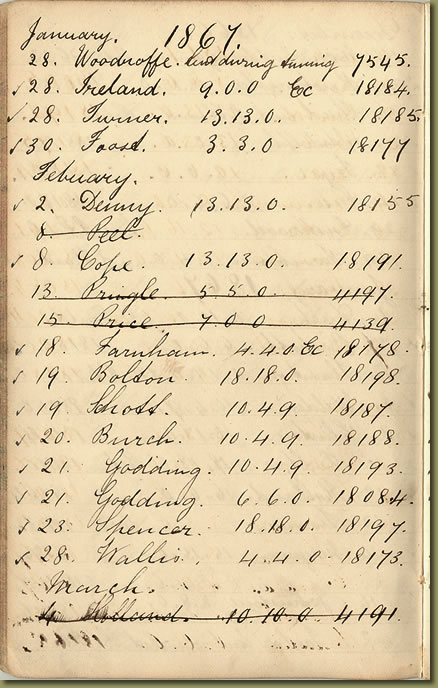 January. 1867.
28. Woodroffe. lent during tuning 7545.
✓ 28. Ireland. 9.0.0 Ec 18184.
✓ 28. Turner. 13.13.0. 18185.
✓ 30. Foast. 3.3.0 18177
Febuary.
✓ 2. Denny. 13.13.0. 18155
8. Peel.
✓ 8. Cope. 13.13.0. 18191.
13. Pringle. 5.5.0. 4197.
15. Price. 7.0.0 4139.
✓ 18. Farnham. 4.4.0. Ec 18178.
✓ 19 Bolton. 18.18.0. 18198.
✓ 19. Schott. 10.4.9. 18187.
✓ 20. Burch. 10.4.9. 18188.
✓ 21. Godding. 10.4.9 18193.
✓ 21. Godding. 6.6.0. 18084.
✓ 23. Spencer. 18.18.0. 18197.
✓ 28. Wallis. 4.4.0. 18173.
March.
4. Holland. 10.10.0. 4191.